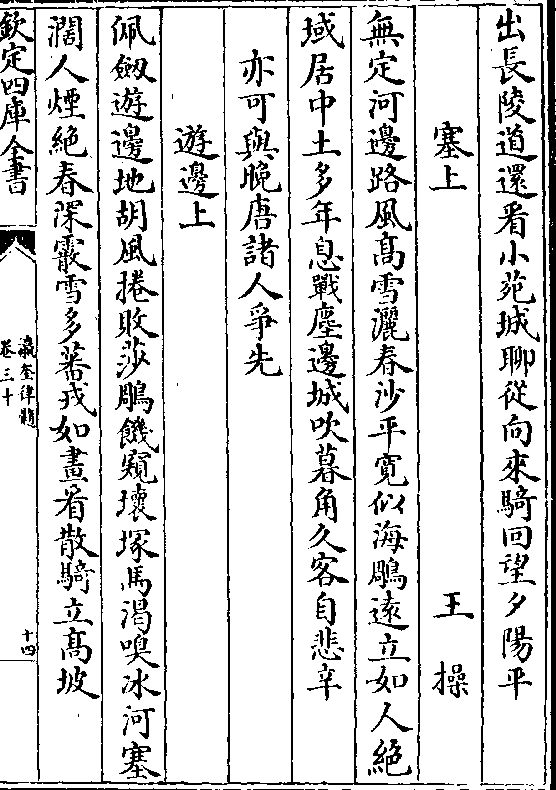 出長陵道還看小苑城聊從向來騎回望夕陽平
塞上　王操
無定河邊路風高雪灑春沙平寛似海鵰遠立如人絶
域居中土多年息戰塵邊城吹暮角久客自悲辛
亦可與晚唐諸人爭先
遊邊上
佩劒遊邊地胡風捲敗莎鵰饑窺壞塚馬渴嗅冰河塞
濶人煙絶春深霰雪多蕃戎如畫看散騎立髙坡
欽定四庫全書
瀛奎律髓
卷三十
十四